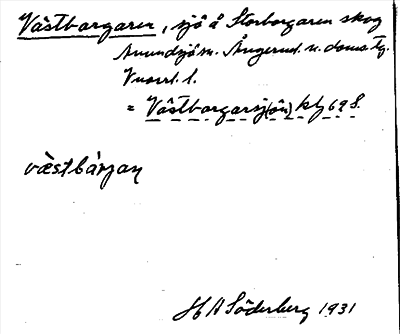 Västbargaren, sjö å Storborgaren skog
Anundsjö sn. Ångerml. n. doms tg.
Vnorrl. l.
= Västborgarsj(ön) kbg 698.
västbárjan
H A Söderberg 1931